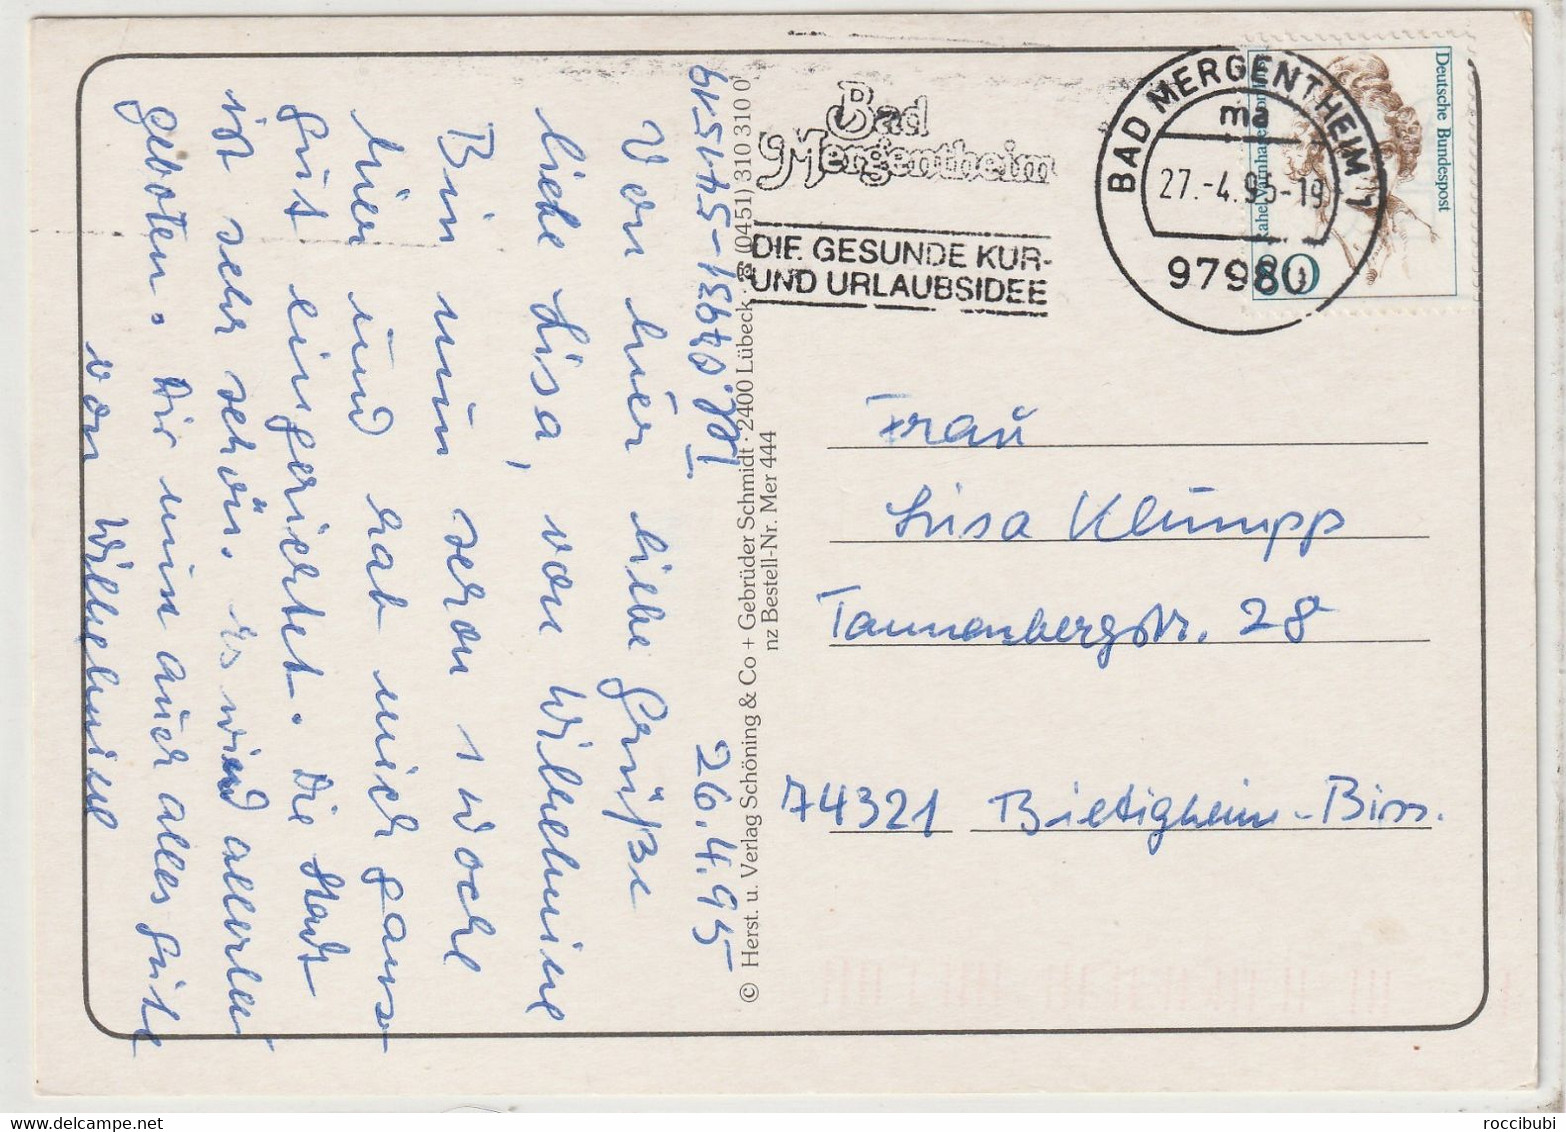 Bad
Mergentheim
DIE GESUNDE KUR-
UND URLAUBSIDEE
BAD MERGENTHEIM 1
ma
27.-4.95-19
97980
Deutsche Bundespost
80
Frau
Lisa Klumpp
Tannenbergstr. 28
74321 Bietigheim-Biss.
© Herst. u. Verlag Schöning & Co + Gebrüder Schmidt · 2400 Lübeck · ☎ (0451) 310 310 0
nz Bestell-Nr. Mer 444
26.4.95
Von hier liebe Grüße
liebe Lisa, von Wilhelmine
Bin nun schon 1 Woche
hier und hab mich ganz
gut eingerichtet. Die Stadt
ist sehr schön. Es wird allerlei
geboten. Dir nun auch alles Gute
von Wilhelmine
roccibubi